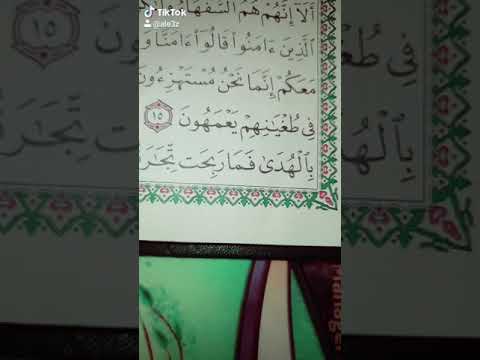 TikTok
@ale3z
أَلَآ إِنَّهُمْ هُمُ ٱلسُّفَهَا
ٱلَّذِينَ ءَامَنُوا۟ قَالُوٓا۟ ءَامَنَّا وَ
مَعَكُمْ إِنَّمَا نَحْنُ مُسْتَهْزِءُونَ
فِى طُغْيَٰنِهِمْ يَعْمَهُونَ ١٥
بِٱلْهُدَىٰ فَمَا رَبِحَت تِّجَٰرَ